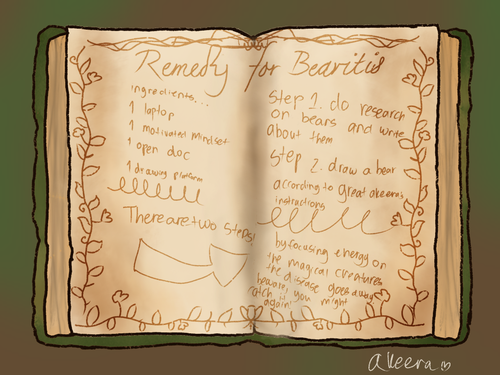 Remedy for Bearitis
ingredients...
1 laptop
1 motivated mindset
1 open doc
1 drawing platform
There are two steps!
Step 1. do research
on bears and write
about them
Step 2. draw a bear
according to great akeera's
instructions
by focusing energy on
the magical creatures
the disease goes away
beware, you might
catch it
again!
akeera